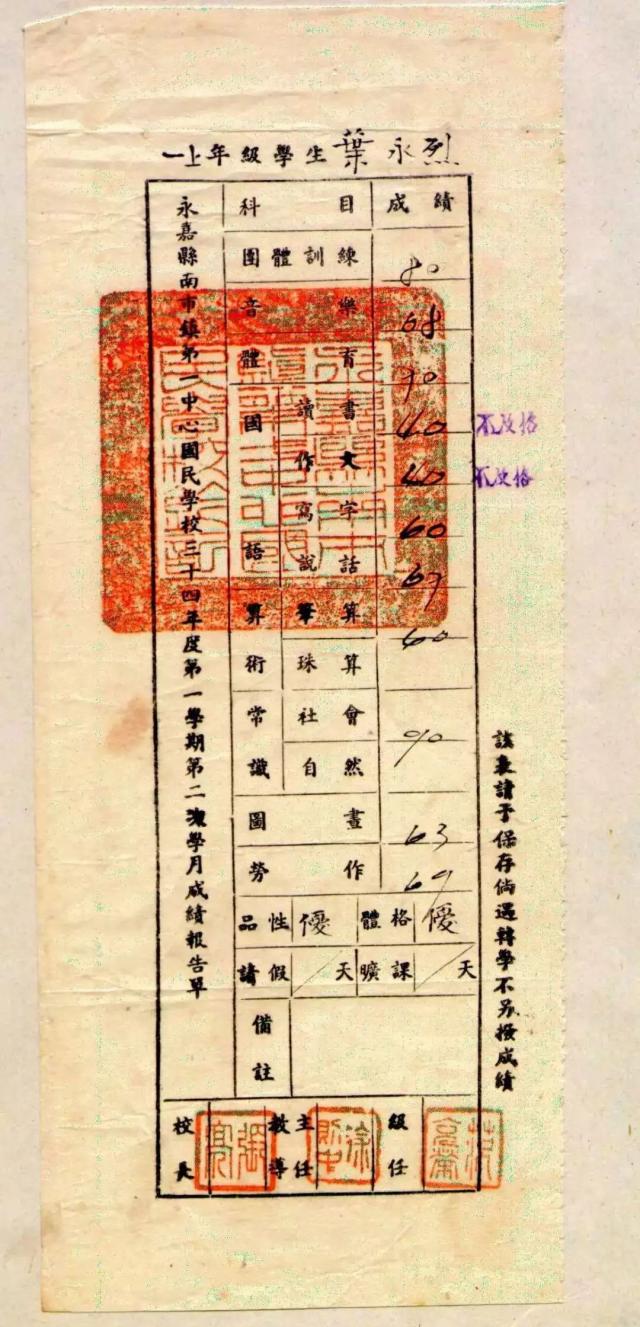 一上年級學生葉永烈
永嘉縣南市鎮第一中心國民學校三十四年度第一學期第二次學月成績報告單
科目 成績
團體訓練 80
音樂 68
體育 70
國語 讀書 40 不及格
作文 40 不及格
寫字 60
說話 69
算術 筆算 60
珠算
常識 社會 90
自然
圖畫 63
勞作 69
品性 優 體格 優
請假 / 天 曠課 / 天
備註
校長 教導主任 級任
該表請予保存倘遇轉學不另發成績